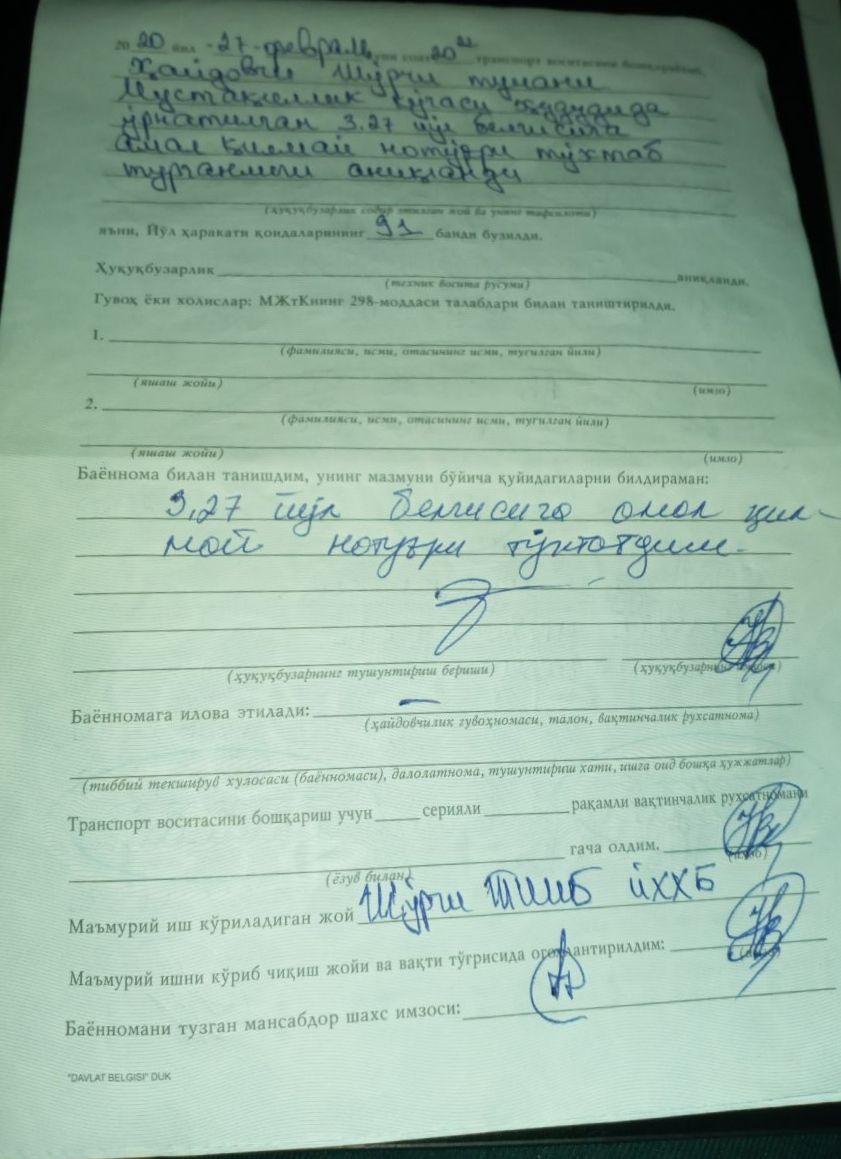 2020 йил "27" февраль куни соат 20 транспорт воситасини бошқарабиб,
Ҳайдовчи Шўрчи тумани
Мустақиллик кўчаси ҳудудида
ўрнатилган 3.27 йўл белгисига
амал қилмай нотўғри тўхтаб
турганлиги аниқланди
(ҳуқуқбузарлик содир этилган жой ва унинг тафсилоти)
яъни, Йўл ҳаракати қоидаларининг 91 банди бузилди.
Ҳуқуқбузарлик аниқланди.
(техник восита русуми)
Гувоҳ ёки холислар: МЖтКнинг 298-моддаси талабдари билан таништирилди.
1.
(фамилияси, исми, отасининг исми, туғилган йили)
(яшаш жойи) (имзо)
2.
(фамилияси, исми, отасининг исми, туғилган йили)
(яшаш жойи) (имзо)
Баённома билан танишдим, унинг мазмуни бўйича қуйидагиларни билдираман:
3,27 йўл белгисига омол қил-
мой нотуғри тўхтотдим.
(ҳуқуқбузарнинг тушунтириш бериши) (ҳуқуқбузарнинг имзоси)
Баённомага илова этилади: –
(ҳайдовчилик гувоҳномаси, талон, вақтинчалик рухсатнома)
(тиббий текширув хулосаси (баённомаси), далолатнома, тушунтириш хати, ишга оид бошқа ҳужжатлар)
Транспорт воситасини бошқариш учун серияли рақамли вақтинчалик рухсатномани
гача олдим.
(ёзув билан) (имзо)
Маъмурий иш кўриладиган жой Шўрчи ТИИБ ЙХХБ
Маъмурий ишни кўриб чиқиш жойи ва вақти тўғрисида огоҳлантирилдим:
(имзо)
Баённомани тузган мансабдор шахс имзоси:
"DAVLAT BELGISI" DUK